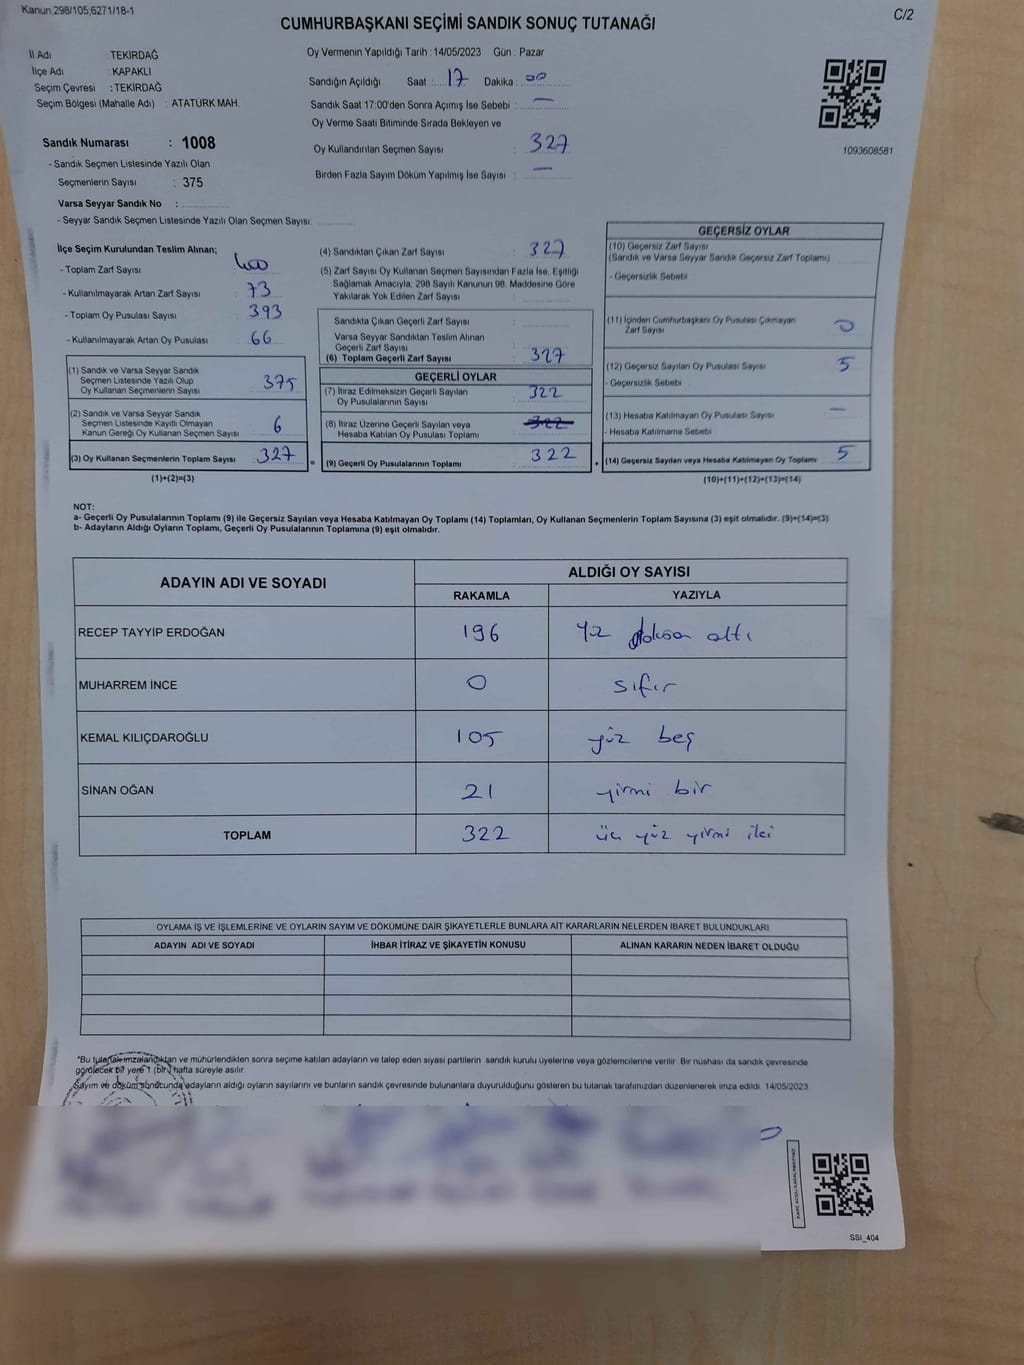 Kanun.298/105,6271/18-1
C/2
CUMHURBAŞKANI SEÇİMİ SANDIK SONUÇ TUTANAĞI
İl Adı : TEKİRDAĞ
İlçe Adı : KAPAKLI
Seçim Çevresi : TEKİRDAĞ
Seçim Bölgesi (Mahalle Adı) : ATATÜRK MAH.
Oy Vermenin Yapıldığı Tarih : 14/05/2023 Gün : Pazar
Sandığın Açıldığı Saat : 17 Dakika : 00
Sandık Saat 17:00'den Sonra Açımış İse Sebebi : —
Oy Verme Saati Bitiminde Sırada Bekleyen ve
Oy Kullandırılan Seçmen Sayısı : 327
Birden Fazla Sayım Döküm Yapılmış İse Sayısı : —
1093608581
Sandık Numarası : 1008
- Sandık Seçmen Listesinde Yazılı Olan
Seçmenlerin Sayısı : 375
Varsa Seyyar Sandık No :
- Seyyar Sandık Seçmen Listesinde Yazılı Olan Seçmen Sayısı:
İlçe Seçim Kurulundan Teslim Alınan;
- Toplam Zarf Sayısı : 400
- Kullanılmayarak Artan Zarf Sayısı : 73
- Toplam Oy Pusulası Sayısı : 393
- Kullanılmayarak Artan Oy Pusulası : 66
(1) Sandık ve Varsa Seyyar Sandık
Seçmen Listesinde Yazılı Olup
Oy Kullanan Seçmenlerin Sayısı : 375
(2) Sandık ve Varsa Seyyar Sandık
Seçmen Listesinde Kayıtlı Olmayan
Kanun Gereği Oy Kullanan Seçmen Sayısı : 6
(3) Oy Kullanan Seçmenlerin Toplam Sayısı : 327
(1)+(2)=(3)
(4) Sandıktan Çıkan Zarf Sayısı : 327
(5) Zarf Sayısı Oy Kullanan Seçmen Sayısından Fazla İse, Eşitliği
Sağlamak Amacıyla, 298 Sayılı Kanunun 98. Maddesine Göre
Yakılarak Yok Edilen Zarf Sayısı :
Sandıkta Çıkan Geçerli Zarf Sayısı :
Varsa Seyyar Sandıktan Teslim Alınan
Geçerli Zarf Sayısı :
(6) Toplam Geçerli Zarf Sayısı : 327
GEÇERLİ OYLAR
(7) İtiraz Edilmeksizin Geçerli Sayılan
Oy Pusulalarının Sayısı : 322
(8) İtiraz Üzerine Geçerli Sayılan veya
Hesaba Katılan Oy Pusulası Toplamı : 322
= (9) Geçerli Oy Pusulalarının Toplamı : 322 +
GEÇERSİZ OYLAR
(10) Geçersiz Zarf Sayısı
(Sandık ve Varsa Seyyar Sandık Geçersiz Zarf Toplamı)
- Geçersizlik Sebebi
(11) İçinden Cumhurbaşkanı Oy Pusulası Çıkmayan
Zarf Sayısı : 0
(12) Geçersiz Sayılan Oy Pusulası Sayısı : 5
- Geçersizlik Sebebi
(13) Hesaba Katılmayan Oy Pusulası Sayısı : —
- Hesaba Katılmama Sebebi
(14) Geçersiz Sayılan veya Hesaba Katılmayan Oy Toplamı : 5
(10)+(11)+(12)+(13)=(14)
NOT:
a- Geçerli Oy Pusulalarının Toplamı (9) ile Geçersiz Sayılan veya Hesaba Katılmayan Oy Toplamı (14) Toplamları, Oy Kullanan Seçmenlerin Toplam Sayısına (3) eşit olmalıdır. (9)+(14)=(3)
b- Adayların Aldığı Oyların Toplamı, Geçerli Oy Pusulalarının Toplamına (9) eşit olmalıdır.
ADAYIN ADI VE SOYADI
ALDIĞI OY SAYISI
RAKAMLA YAZIYLA
RECEP TAYYİP ERDOĞAN 196 yüz doksan altı
MUHARREM İNCE 0 sıfır
KEMAL KILIÇDAROĞLU 105 yüz beş
SİNAN OĞAN 21 yirmi bir
TOPLAM 322 üç yüz yirmi iki
OYLAMA İŞ VE İŞLEMLERİNE VE OYLARIN SAYIM VE DÖKÜMÜNE DAİR ŞİKAYETLERLE BUNLARA AİT KARARLARIN NELERDEN İBARET BULUNDUKLARI
ADAYIN ADI VE SOYADI İHBAR İTİRAZ VE ŞİKAYETİN KONUSU ALINAN KARARIN NEDEN İBARET OLDUĞU
*Bu tutanak imzalandıktan ve mühürlendikten sonra seçime katılan adayların ve talep eden siyasi partilerin sandık kurulu üyelerine veya gözlemcilerine verilir. Bir nüshası da sandık çevresinde
görülecek bir yere 1 (bir) hafta süreyle asılır.
Sayım ve döküm sonucunda adayların aldığı oyların sayılarını ve bunların sandık çevresinde bulunanlara duyurulduğunu gösteren bu tutanak tarafımızdan düzenlenerek imza edildi. 14/05/2023
SSI_404